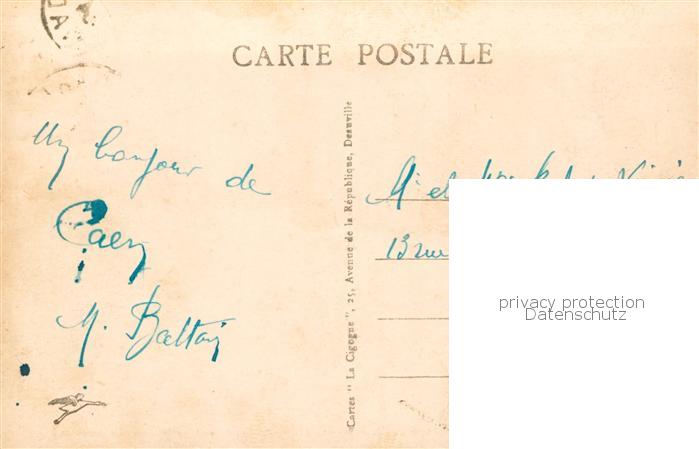 CARTE POSTALE
Un bonjour de
Caen
M. Baltais
Cartes " La Cigogne ", 25, Avenue de la République, Deauville
Mr et Mme
13 rue
privacy protection
Datenschutz